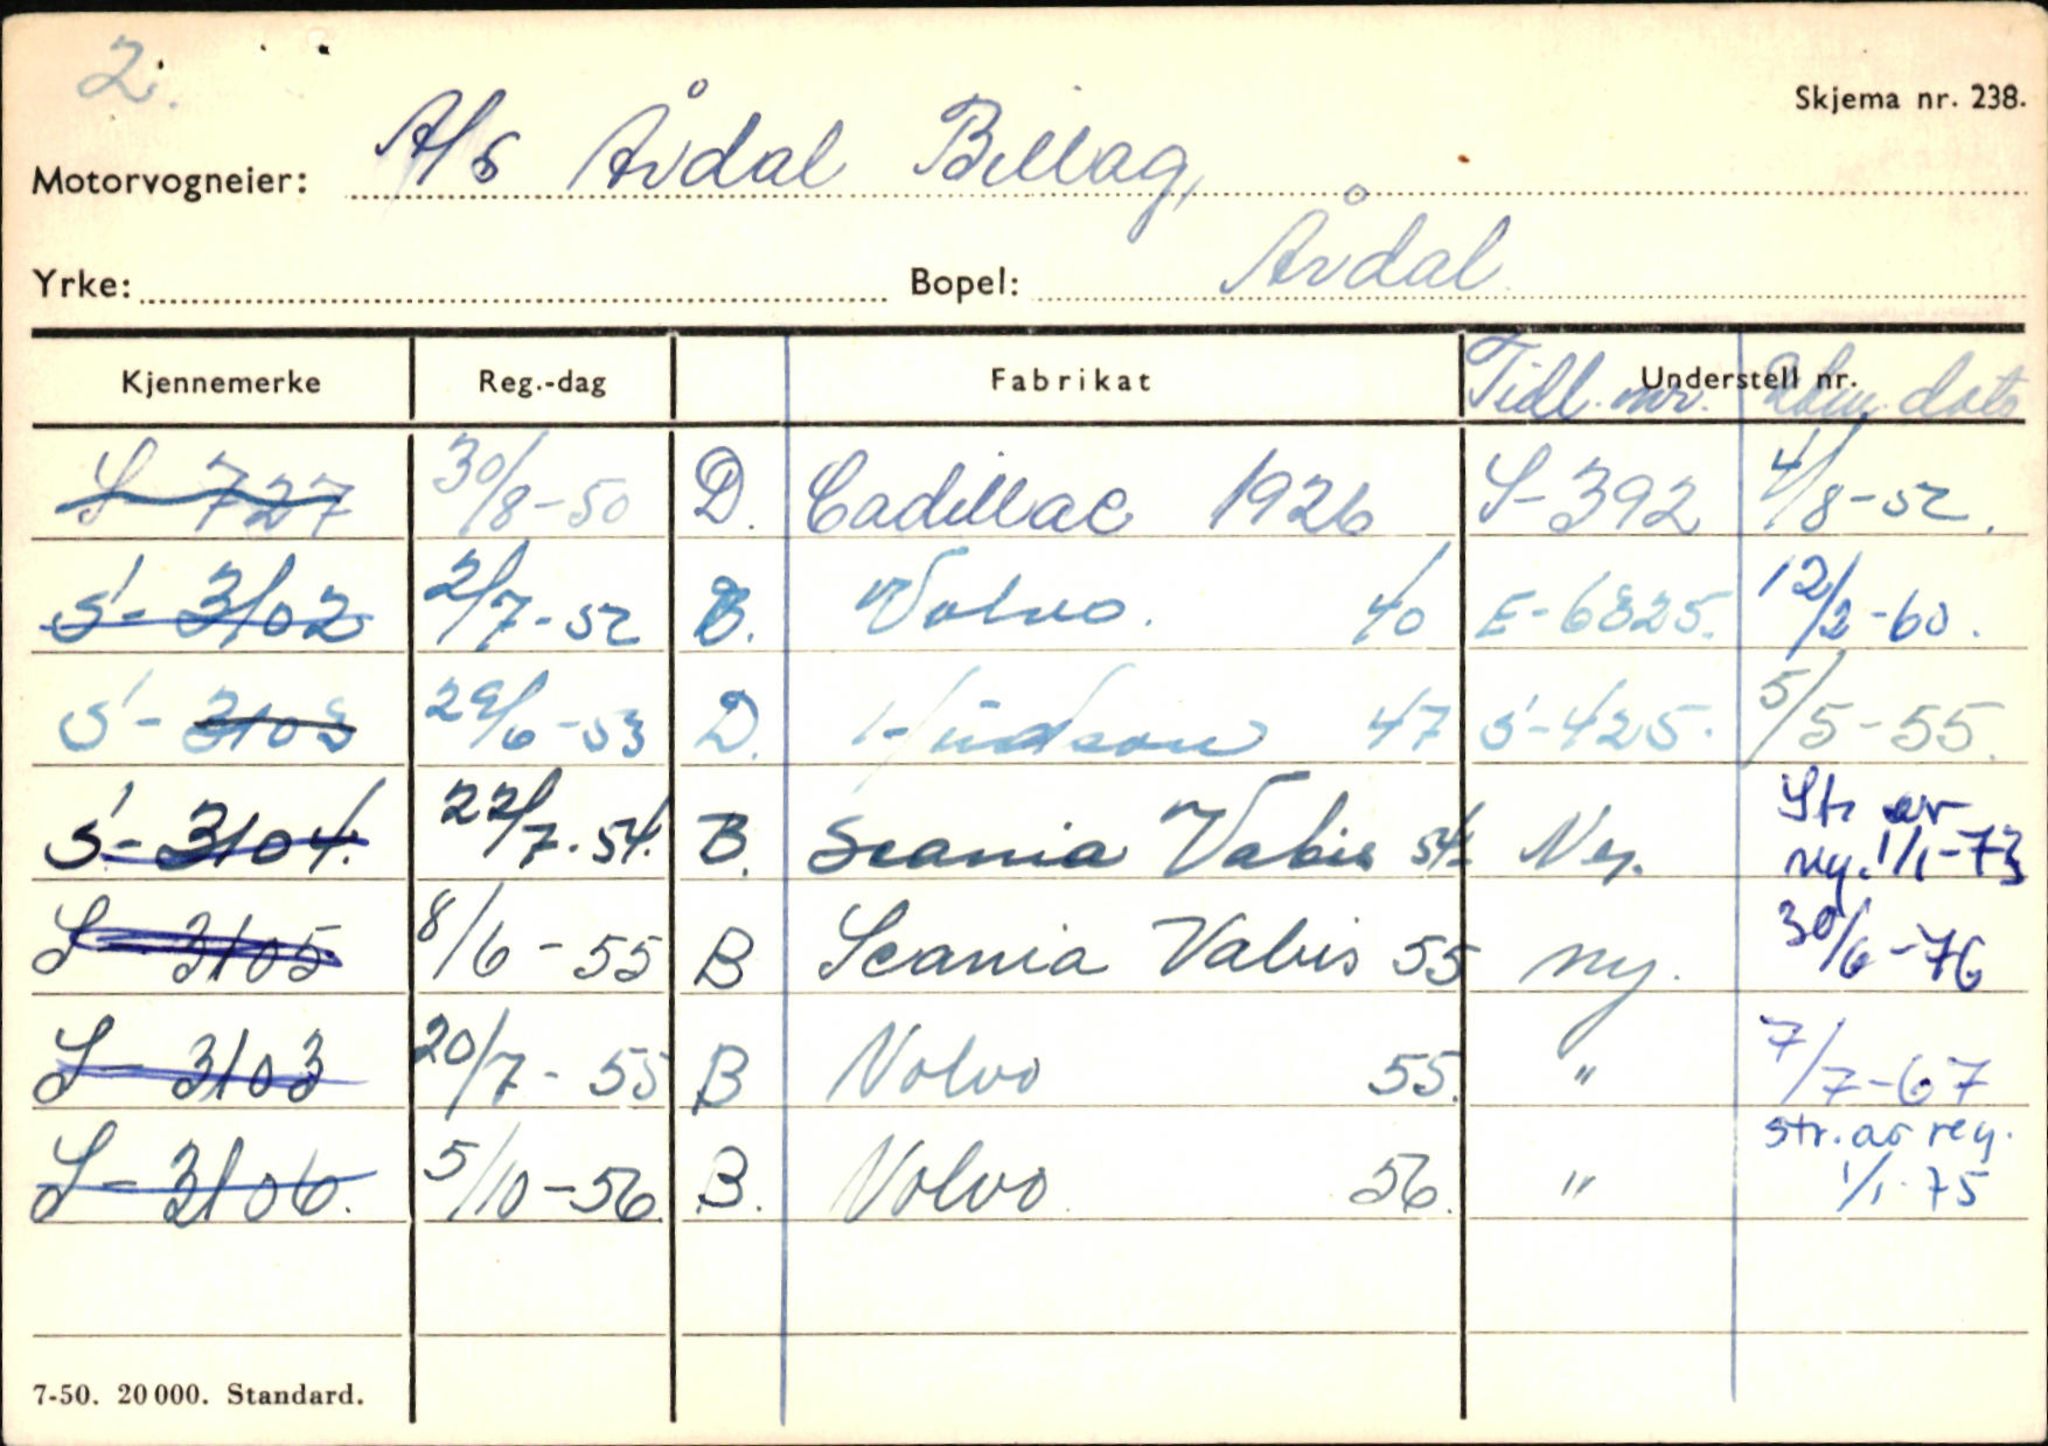 2.
Skjema nr. 238.
Motorvogneier: A/S Årdal Billag,
Yrke: Bopel: Årdal
Kjennemerke Reg.-dag Fabrikat Understell nr. Tidl. nr. dato
S-727 30/8-50 D. Cadillac 1926 S-392 4/8-52.
S-3102 2/7-52 B. Volvo. 40 E-6825. 12/2-60.
S-3103 29/6-53 D. Hudson 47 S-425. 5/5-55.
S-3104. 22/7-54. B. Scania Vabis 54 Ny. Str av
ny. 1/1-73
S-3105 8/6-55 B Scania Vabis 55 ny. 30/6-76
S-3103 20/7-55 B Volvo 55. " 7/7-67
S-3106. 5/10-56. B. Volvo 56. " str. av reg.
1/1-75
7-50. 20 000. Standard.